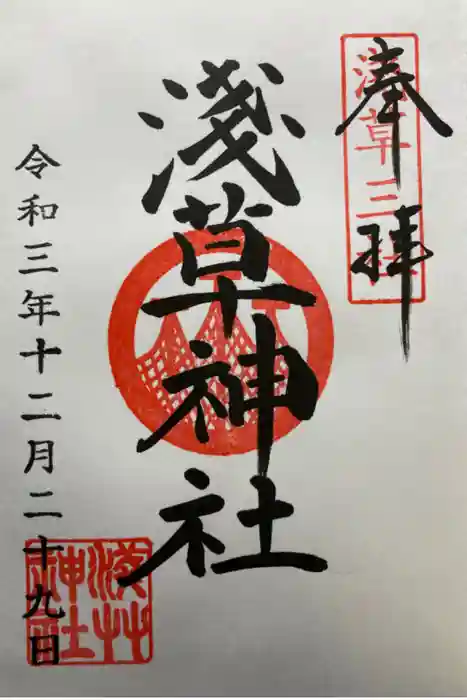 奉拝
浅草三社
淺草神社
令和三年十二月二十九日
淺草神社